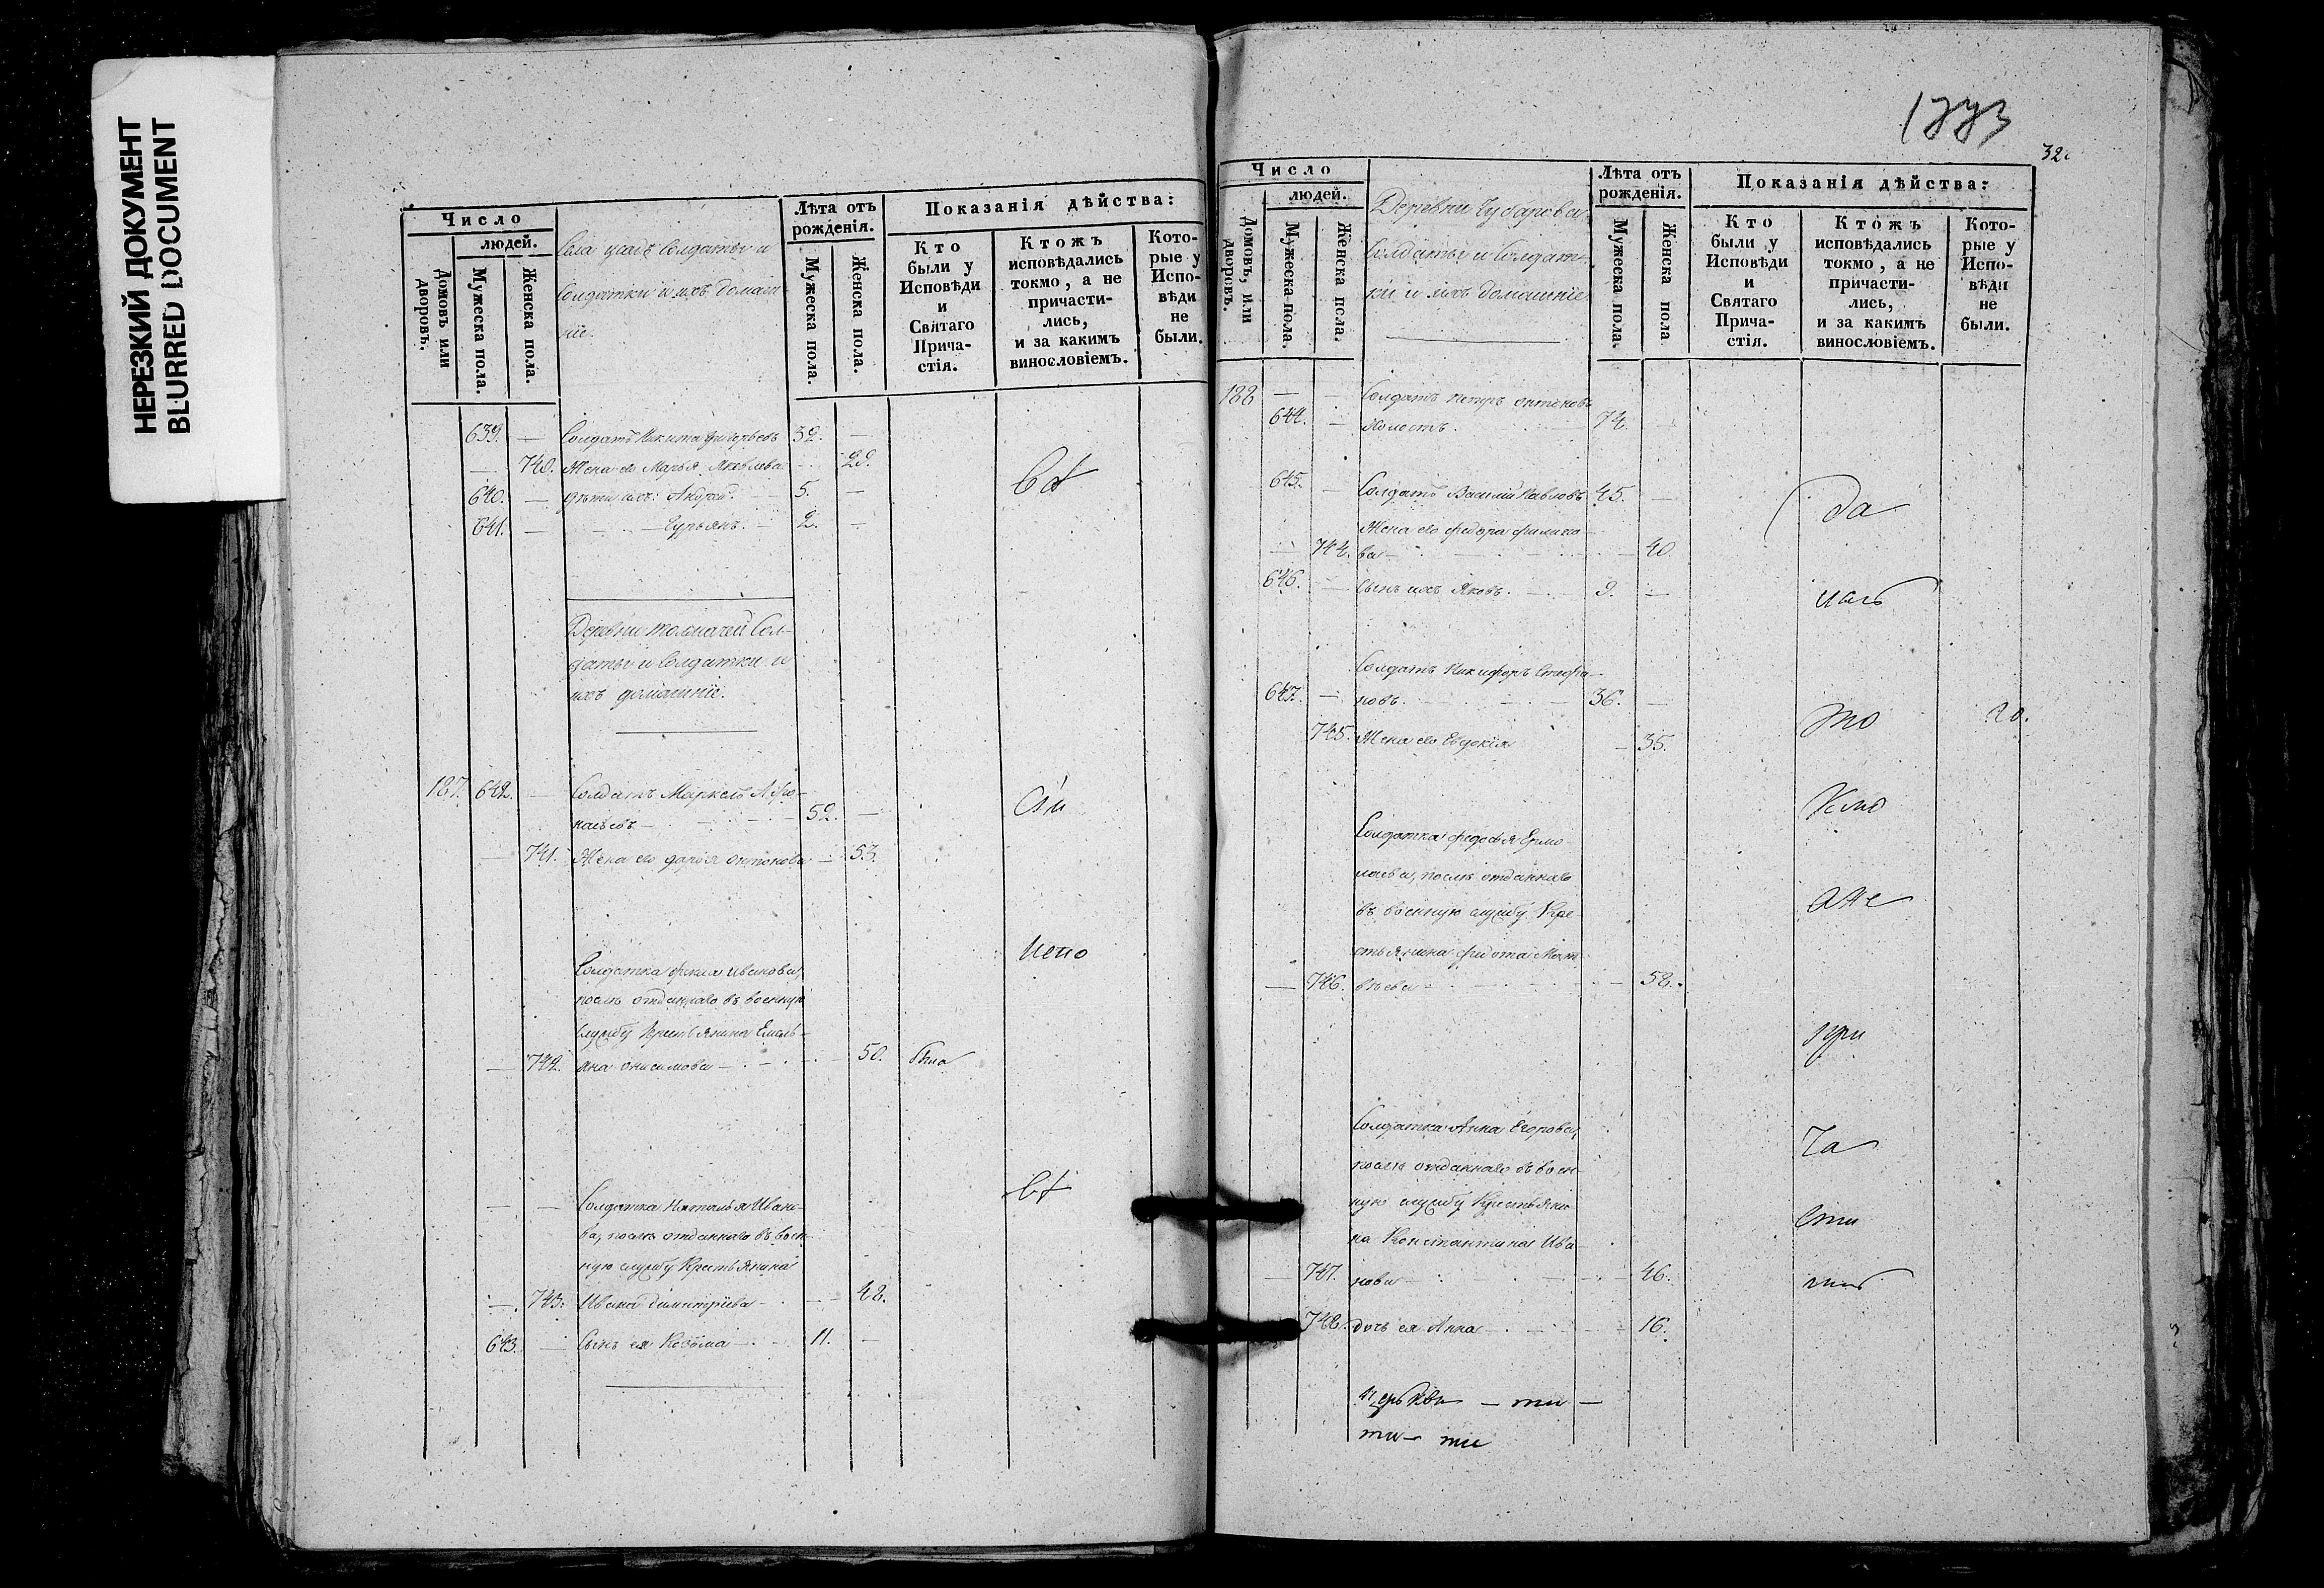 НЕРЕЗКИЙ ДОКУМЕНТ
BLURRED DOCUMENT
Число
людей.
Домовъ или дворовъ.
Мужеска пола.
Женска пола.
Села Солдаты и
Солдатки и ихъ домаш
ніе.
Лѣта отъ рожденія.
Мужеска пола.
Женска пола.
Показанія дѣйства:
Кто были у Исповѣди и Святаго Прича-стія.
Ктожъ исповѣдались токмо, а не причасти-лись, и за какимъ винословіемъ.
Кото-рые у Испо-вѣди не были.
639. — Солдатъ Никита Григорьевъ 32. —
— 740. Жена его Марья Яковлева — 29.
640. — дѣти ихъ: Андрей. 5. —
641. — Гурьянъ. — 2. —
Деревни Толмачей Сол-
даты и Солдатки и
ихъ домашніе.
187. 642. — Солдатъ Маркелъ Афо-
насьевъ — 52. —
— 741. Жена его Дарья Антонова — 53.
Ис по
Солдатка Фекла Иванова,
послѣ отданнаго въ военную
службу Крестьянина Емель-
— 742. яна Онисимова — 50. была
Солдатка Наталья Ивано-
ва, послѣ отданнаго въ воен-
ную службу Крестьянина
— 743. Ивана Димитріева — 48.
643. — Сынъ ея Козьма — 11. —
1773
32
Число
людей.
Домовъ, или дворовъ.
Мужеска пола.
Женска пола.
Деревни Чубарова
Солдаты и Солдат-
ки и ихъ домашніе
Лѣта отъ рожденія.
Мужеска пола.
Женска пола
Показанія дѣйства:
Кто были у Исповѣди и Святаго Прича-стія.
Ктожъ исповѣдались токмо, а не причасти-лись, и за какимъ винословіемъ.
Кото-рые у Испо-вѣди не были.
188 — — Солдатъ Петръ Антоновъ
644. — Холостъ. 74. —
645. — Солдатъ Василій Павловъ 45. —
да
Жена его Федора Филипо-
— 744. ва — 40.
646. — Сынъ ихъ Яковъ. 9. —
лись
Солдатъ Никифоръ Стефа-
647. — новъ. 36. —
то
745. Жена его Евдокія — 35.
кмо
Солдатка Федосья Ермо-
лаева, послѣ отданнаго
а не
въ военную службу Кре-
стьянина Федота Мат-
— 746. вѣева — 58.
при
Солдатка Анна Егорова,
ча
послѣ отданнаго въ воен-
ную службу Крестьяни-
сти
на Константина Ива-
— 747. нова — 46.
748. дочь ея Анна — 16.